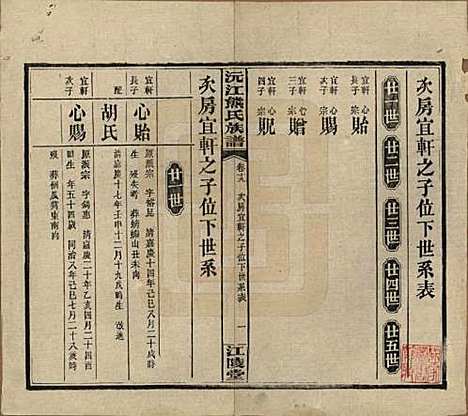 次房宜軒之子位下世系表
廿一世 廿二世 廿三世 廿四世 廿五世
宜軒長子 心貽 宗
宜軒次子 心賜 宗
宜軒三子 心贈 宗
宜軒四子 心貺 宗
沅江熊氏族譜 卷十九 次房宜軒之子位下世系表 一 江陵堂
次房宜軒之子位下世系
廿一世
宜軒長子 心貽
原派宗 字裕昆 清嘉慶十四年己巳八月二十戌時
生 歿失考 葬螃蟹山丑未向
配 胡氏
清嘉慶十七年壬申十二月十九戌時生 改適
宜軒次子 心賜
原派宗 字錫惠 清嘉慶二十年乙亥四月二十酉時
生 年五十四歲 同治八年己巳七月二十八
歿 葬